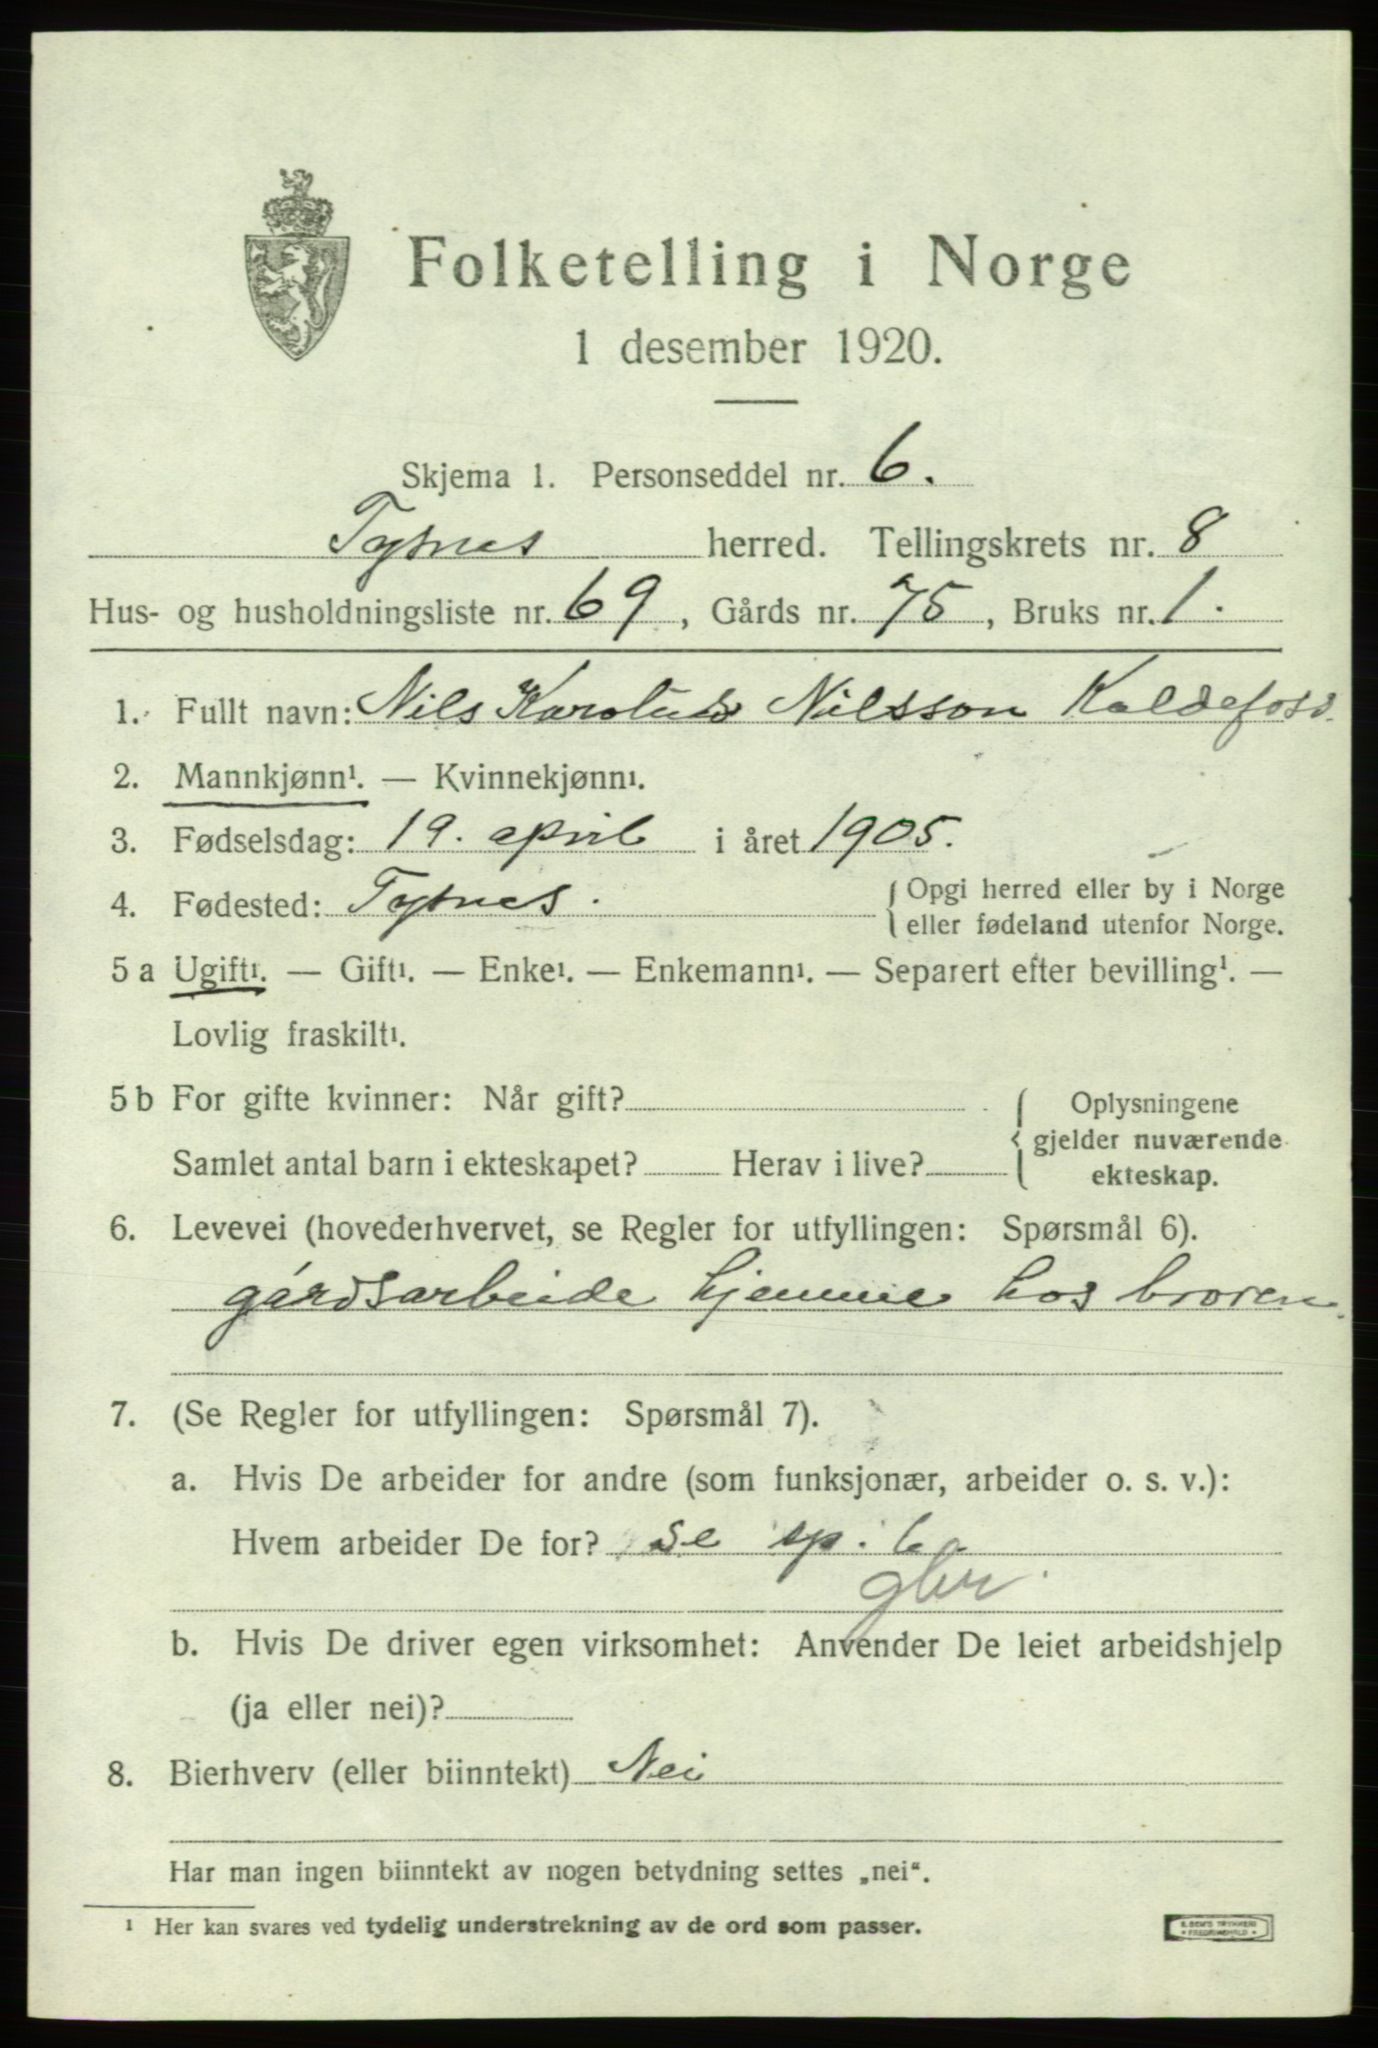 Folketelling i Norge
1 desember 1920.
Skjema 1. Personseddel nr. 6.
Tysnes herred. Tellingskrets nr. 8
Hus- og husholdningsliste nr. 69, Gårds nr. 75, Bruks nr. 1.
1. Fullt navn: Nils Karolus Nilsson Kaldefoss.
2. Mannkjønn¹. — Kvinnekjønn¹.
3. Fødselsdag: 19. april i året 1905.
4. Fødested: Tysnes. { Opgi herred eller by i Norge
eller fødeland utenfor Norge.
5 a Ugift¹. — Gift¹. — Enke¹. — Enkemann¹. — Separert efter bevilling¹. —
Lovlig fraskilt¹.
5 b For gifte kvinner: Når gift?
Samlet antal barn i ekteskapet? Herav i live?
{ Oplysningene
gjelder nuværende
ekteskap.
6. Levevei (hovederhvervet, se Regler for utfyllingen: Spørsmål 6).
gårdsarbeide hjemme hos broren.
7. (Se Regler for utfyllingen: Spørsmål 7).
a. Hvis De arbeider for andre (som funksjonær, arbeider o. s. v.):
Hvem arbeider De for? se sp. 6
gbr.
b. Hvis De driver egen virksomhet: Anvender De leiet arbeidshjelp
(ja eller nei)?
8. Bierhverv (eller biinntekt) Nei
Har man ingen biinntekt av nogen betydning settes „nei“.
¹ Her kan svares ved tydelig understrekning av de ord som passer.